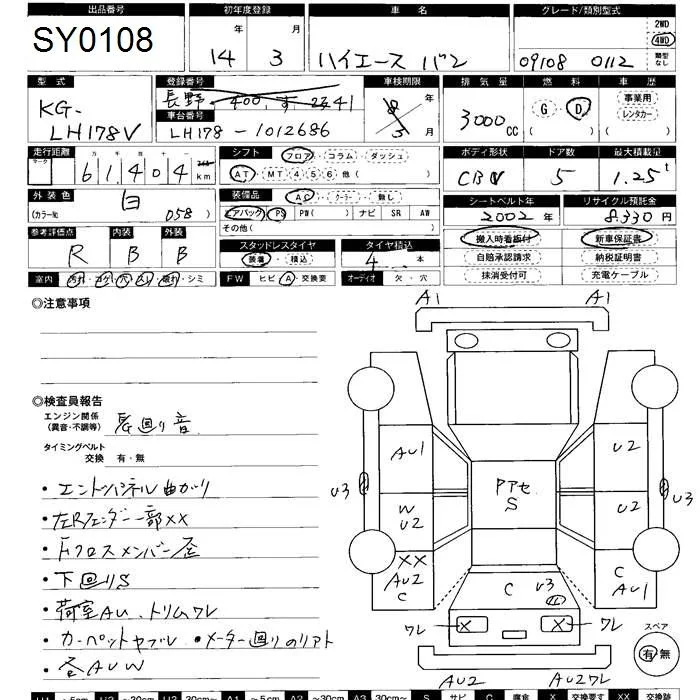 出品番号 初年度登録 車名 グレード/類別型式
SY0108 14年 3月 ハイエース バン 09108 0112 2WD 4WD 類型なし
型式 登録番号 車検期限 排気量 燃料 車歴
KG-LH178V 長野 400 す 2341 8年 3月 3000cc G D ( ) 事業用 レンタカー ( )
車台番号
LH178-1012686
走行距離 シフト フロア・コラム・ダッシュ ボディ形状 ドア数 最大積載量
マーク 十万 万 千 百 十 一
61,404 km AT・MT 4 5 6 他( ) CBV 5 1.25t
外装色 装備品 AC・クーラー・無し シートベルト年 リサイクル預託金
(カラーNo 白 058) エアバッグ PS PW( ) ナビ SR AW 2002年 8,330円
その他( )
参考評価点 内装 外装 スタッドレスタイヤ タイヤ積込 搬入時看板付 新車保証書
R B B 装着・積込 4本 自賠承認請求 納税証明書
室内 汚れ・コゲ・穴・スレ・破れ・シミ FW ヒビ・A・交換要 オーディオ 欠・穴 抹消受付可 充電ケーブル
◎注意事項
◎検査員報告
エンジン関係
(異音・不調等)
タイミングベルト
交換 有・無
・エンドパネル曲がり
・左Rフェンダー一部XX
・Fクロスメンバー歪
・下回りS
・荷室AU、トリムワレ
・カーペットヤブレ ・メーター廻りのリフト
・各AUW
A1 A1
AU1 U2
U3 アアセ S U3
W U2 U2
XX AU2 C C AU1
C U3
ワレ X X ワレ
AU2 AU2ワレ
スペア
有 無
U1 ~5cm U2 ~20cm U3 30cm~ A1 ~5cm A2 ~30cm A3 30cm~ S サビ C 腐食 X 交換要す XX 交換跡